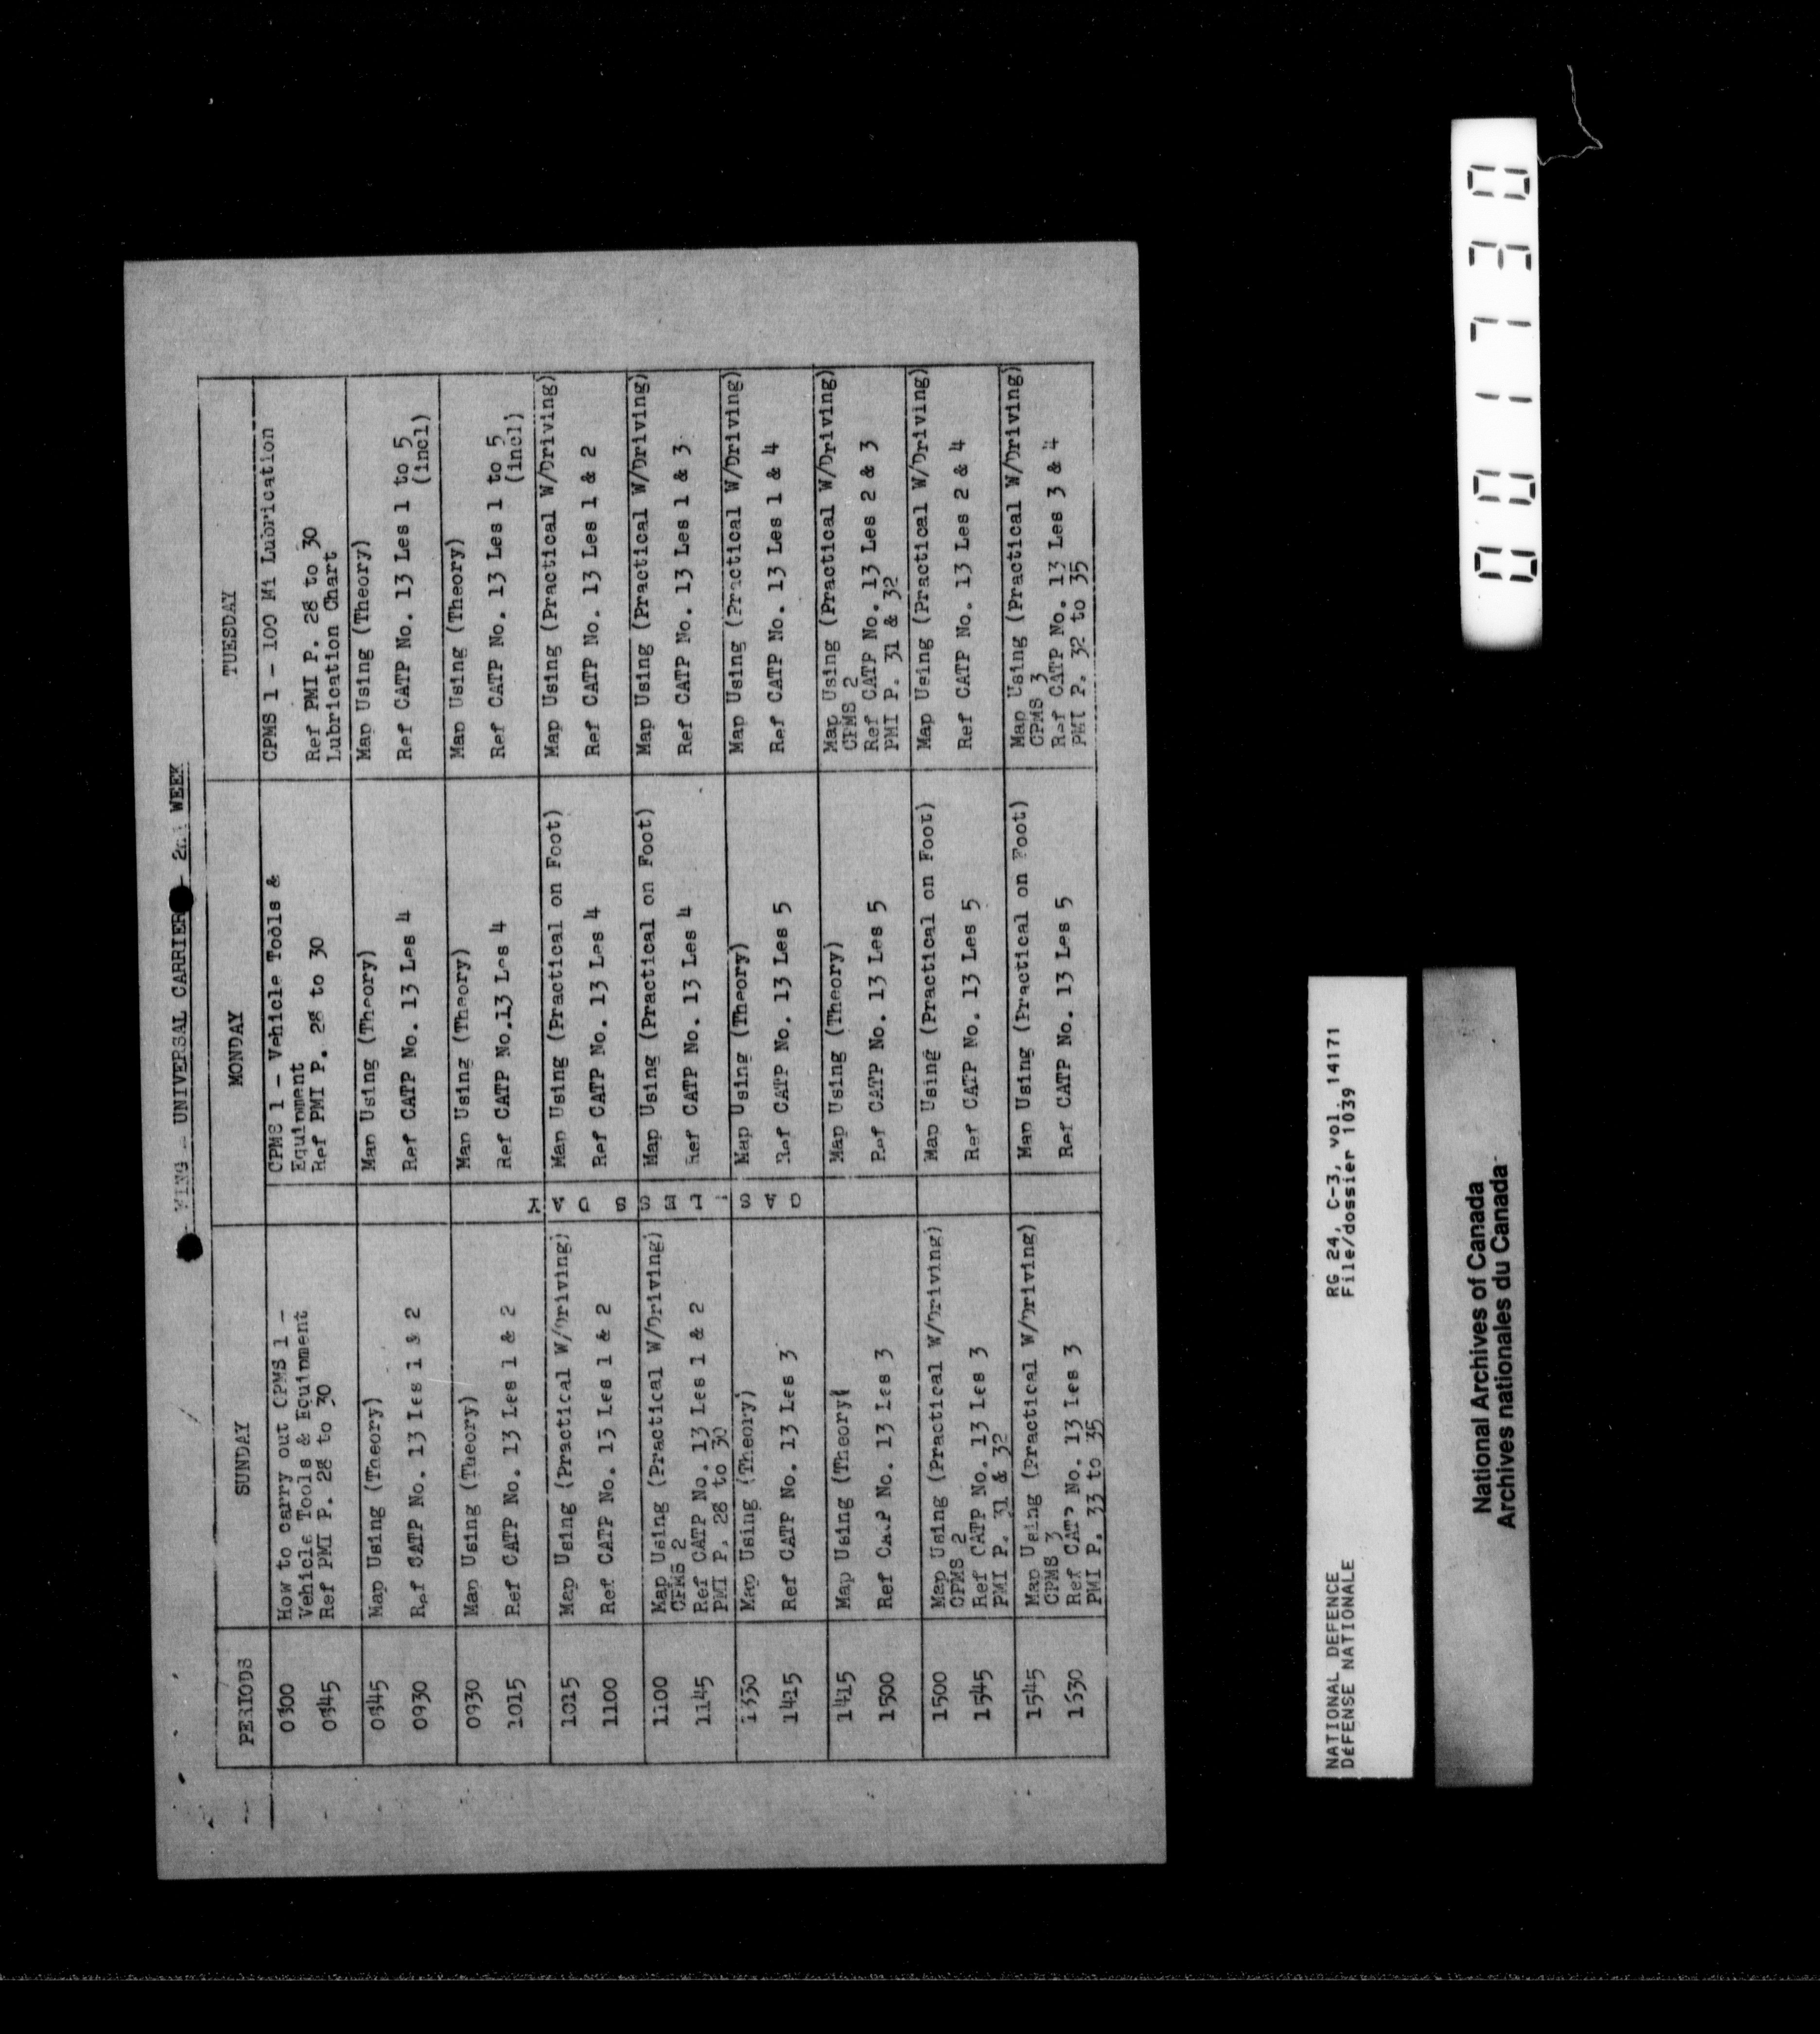 WING - UNIVERSAL CARRIER - 2nd WEEK
PERIODS SUNDAY MONDAY TUESDAY
0800
0845
How to carry out CPMS 1 -
Vehicle Tools & Equipment
Ref PMI P. 28 to 30
CPMS 1 - Vehicle Tools &
Equipment
Ref PMI P. 28 to 30
CPMS 1 - 100 Mi Lubrication
Ref PMI P. 28 to 30
Lubrication Chart
0845
0930
Map Using (Theory)
Ref CATP No. 13 Les 1 & 2
Map Using (Theory)
Ref CATP No. 13 Les 4
Map Using (Theory)
Ref CATP No. 13 Les 1 to 5
(incl)
0930
1015
Map Using (Theory)
Ref CATP No. 13 Les 1 & 2
Map Using (Theory)
Ref CATP No.13 Les 4
Map Using (Theory)
Ref CATP No. 13 Les 1 to 5
(incl)
1015
1100
Map Using (Practical W/Driving)
Ref CATP No. 13 Les 1 & 2
Map Using (Practical on Foot)
Ref CATP No. 13 Les 4
Map Using (Practical W/Driving)
Ref CATP No. 13 Les 1 & 2
1100
1145
Map Using (Practical W/Driving)
CPMS 2
Ref CATP No. 13 Les 1 & 2
PMI P. 28 to 30
Map Using (Practical on Foot)
Ref CATP No. 13 Les 4
Map Using (Practical W/Driving)
Ref CATP No. 13 Les 1 & 3
1330
1415
Map Using (Theory)
Ref CATP No. 13 Les 3
Map Using (Theory)
Ref CATP No. 13 Les 5
Map Using (Practical W/Driving)
Ref CATP No. 13 Les 1 & 4
1415
1500
Map Using (Theory)
Ref CATP No. 13 Les 3
Map Using (Theory)
Ref CATP No. 13 Les 5
Map Using (Practical W/Driving)
CPMS 2
Ref CATP No. 13 Les 2 & 3
PMI P. 31 & 32
1500
1545
Map Using (Practical W/Driving)
CPMS 2
Ref CATP No. 13 Les 3
PMI P. 31 & 32
Map Using (Practical on Foot)
Ref CATP No. 13 Les 5
Map Using (Practical W/Driving)
Ref CATP No. 13 Les 2 & 4
1545
1630
Map Using (Practical W/Driving)
CPMS 3
Ref CATP No. 13 Les 3
PMI P. 33 to 35
Map Using (Practical on Foot)
Ref CATP No. 13 Les 5
Map Using (Practical W/Driving)
CPMS 3
Ref CATP No. 13 Les 3 & 4
PMI P. 32 to 35
NATIONAL DEFENCE RG 24, C-3, vol. 14171
DÉFENSE NATIONALE File/dossier 1039
National Archives of Canada
Archives nationales du Canada
001730